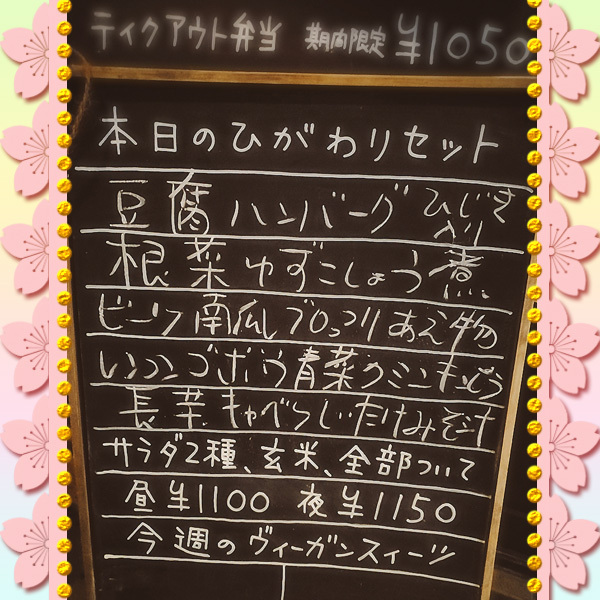 テイクアウト弁当 期間限定 ¥1050
本日のひがわりセット
豆腐ハンバーグ ひじき入り
根菜ゆずこしょう煮
ビーンツ南瓜ブロッコリあえ物
レンコンゴボウ青菜クミンキンピラ
長芋キャベつしいたけみそ汁
サラダ2種、玄米、全部ついて
昼¥1100 夜¥1150
今週のヴィーガンスィーツ